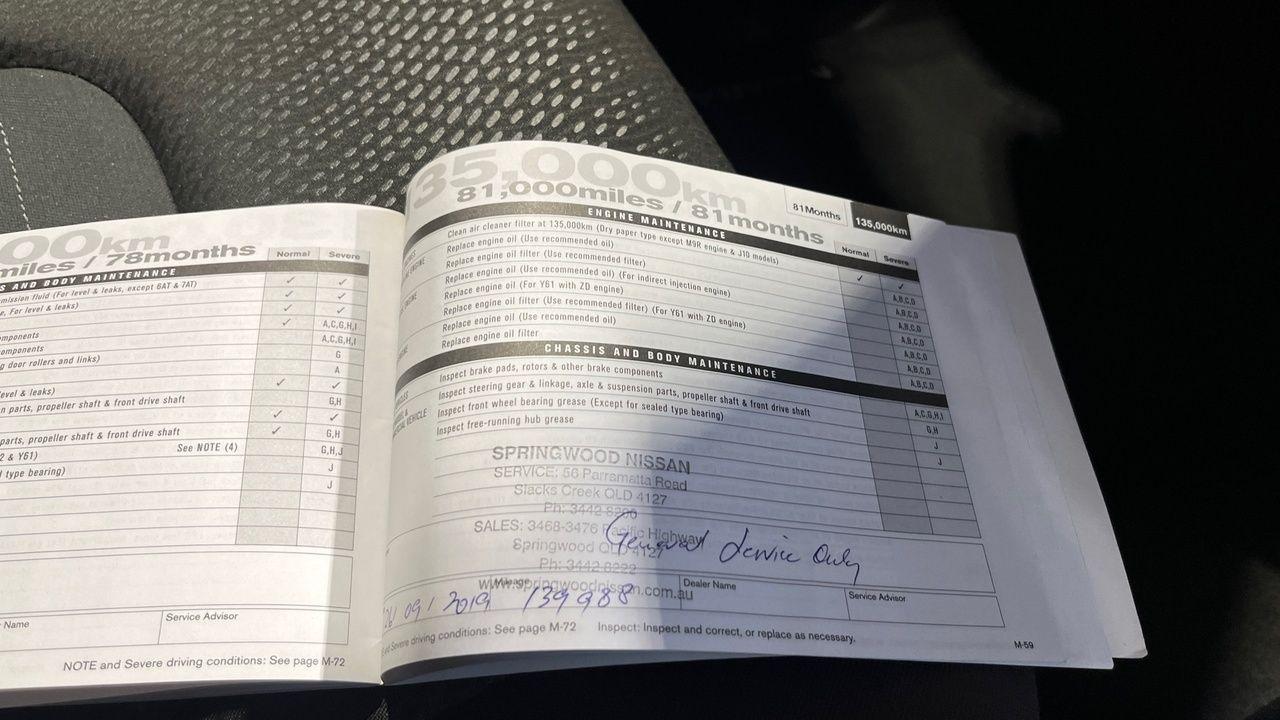 00km
miles / 78months
Normal Severe
S AND BODY MAINTENANCE
mission fluid (For level & leaks, except 6AT & 7AT) ✓ ✓
e, For level & leaks) ✓ ✓
✓ ✓
omponents ✓ A,C,G,H,I
omponents A,C,G,H,I
g door rollers and links) G
A
level & leaks) ✓ ✓
n parts, propeller shaft & front drive shaft G,H
✓ ✓
parts, propeller shaft & front drive shaft ✓ G,H
2 & Y61) See NOTE (4) G,H,J
type bearing) J
J
Name
Service Advisor
NOTE and Severe driving conditions: See page M-72
35,000km
81,000miles / 81months
81Months 135,000km
ENGINE MAINTENANCE
Normal Severe
Clean air cleaner filter at 135,000km (Dry paper type except M9R engine & J10 models) ✓ ✓
Replace engine oil (Use recommended oil) A,B,C,D
Replace engine oil filter (Use recommended filter) A,B,C,D
Replace engine oil (Use recommended oil) (For indirect injection engine) A,B,C,D
Replace engine oil (For Y61 with ZD engine) A,B,C,D
Replace engine oil filter (Use recommended filter) (For Y61 with ZD engine) A,B,C,D
Replace engine oil (Use recommended oil) A,B,C,D
Replace engine oil filter A,B,C,D
CHASSIS AND BODY MAINTENANCE
Inspect brake pads, rotors & other brake components A,C,G,H,I
Inspect steering gear & linkage, axle & suspension parts, propeller shaft & front drive shaft G,H
Inspect front wheel bearing grease (Except for sealed type bearing) J
Inspect free-running hub grease J
SPRINGWOOD NISSAN
SERVICE: 56 Parramatta Road
Slacks Creek QLD 4127
Ph: 3442 8200
SALES: 3468-3476 Pacific Highway
Springwood QLD 4127
Ph: 3442 8222
www.springwoodnissan.com.au
General Service Only
Mileage
Dealer Name
Service Advisor
09 / 2019 139988
and Severe driving conditions: See page M-72 Inspect: Inspect and correct, or replace as necessary.
M-59